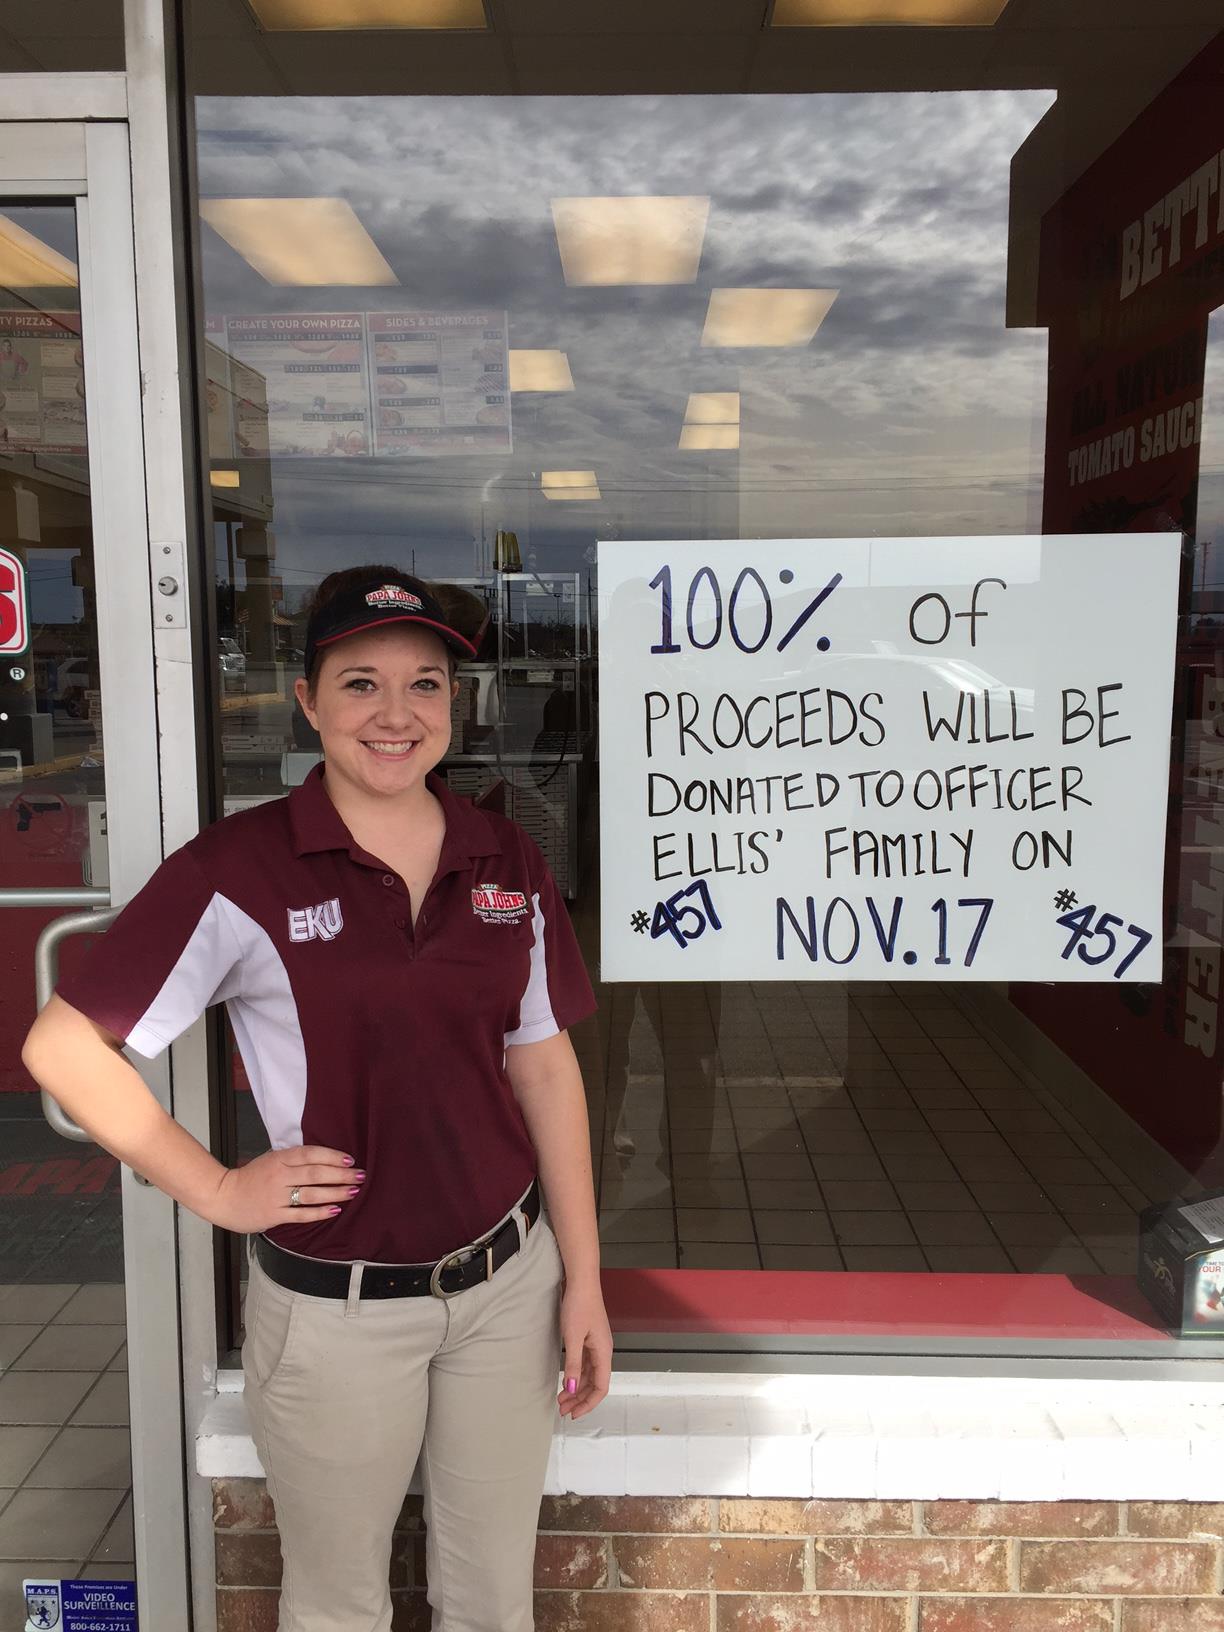 100% of
PROCEEDS WILL BE
DONATED TO OFFICER
ELLIS' FAMILY ON
#457 NOV. 17 #457
PIZZA
PAPA JOHNS
Better Ingredients.
Better Pizza.
EKU
PIZZA
PAPA JOHNS
Better Ingredients.
Better Pizza.
TY PIZZAS
CREATE YOUR OWN PIZZA
SIDES & BEVERAGES
ALL NATURAL
TOMATO SAUC
BETT
BETTER
S
®
PAPA
M.A.P.S.
These Premises are Under
VIDEO
SURVEILLENCE
800-662-1711
YOUR